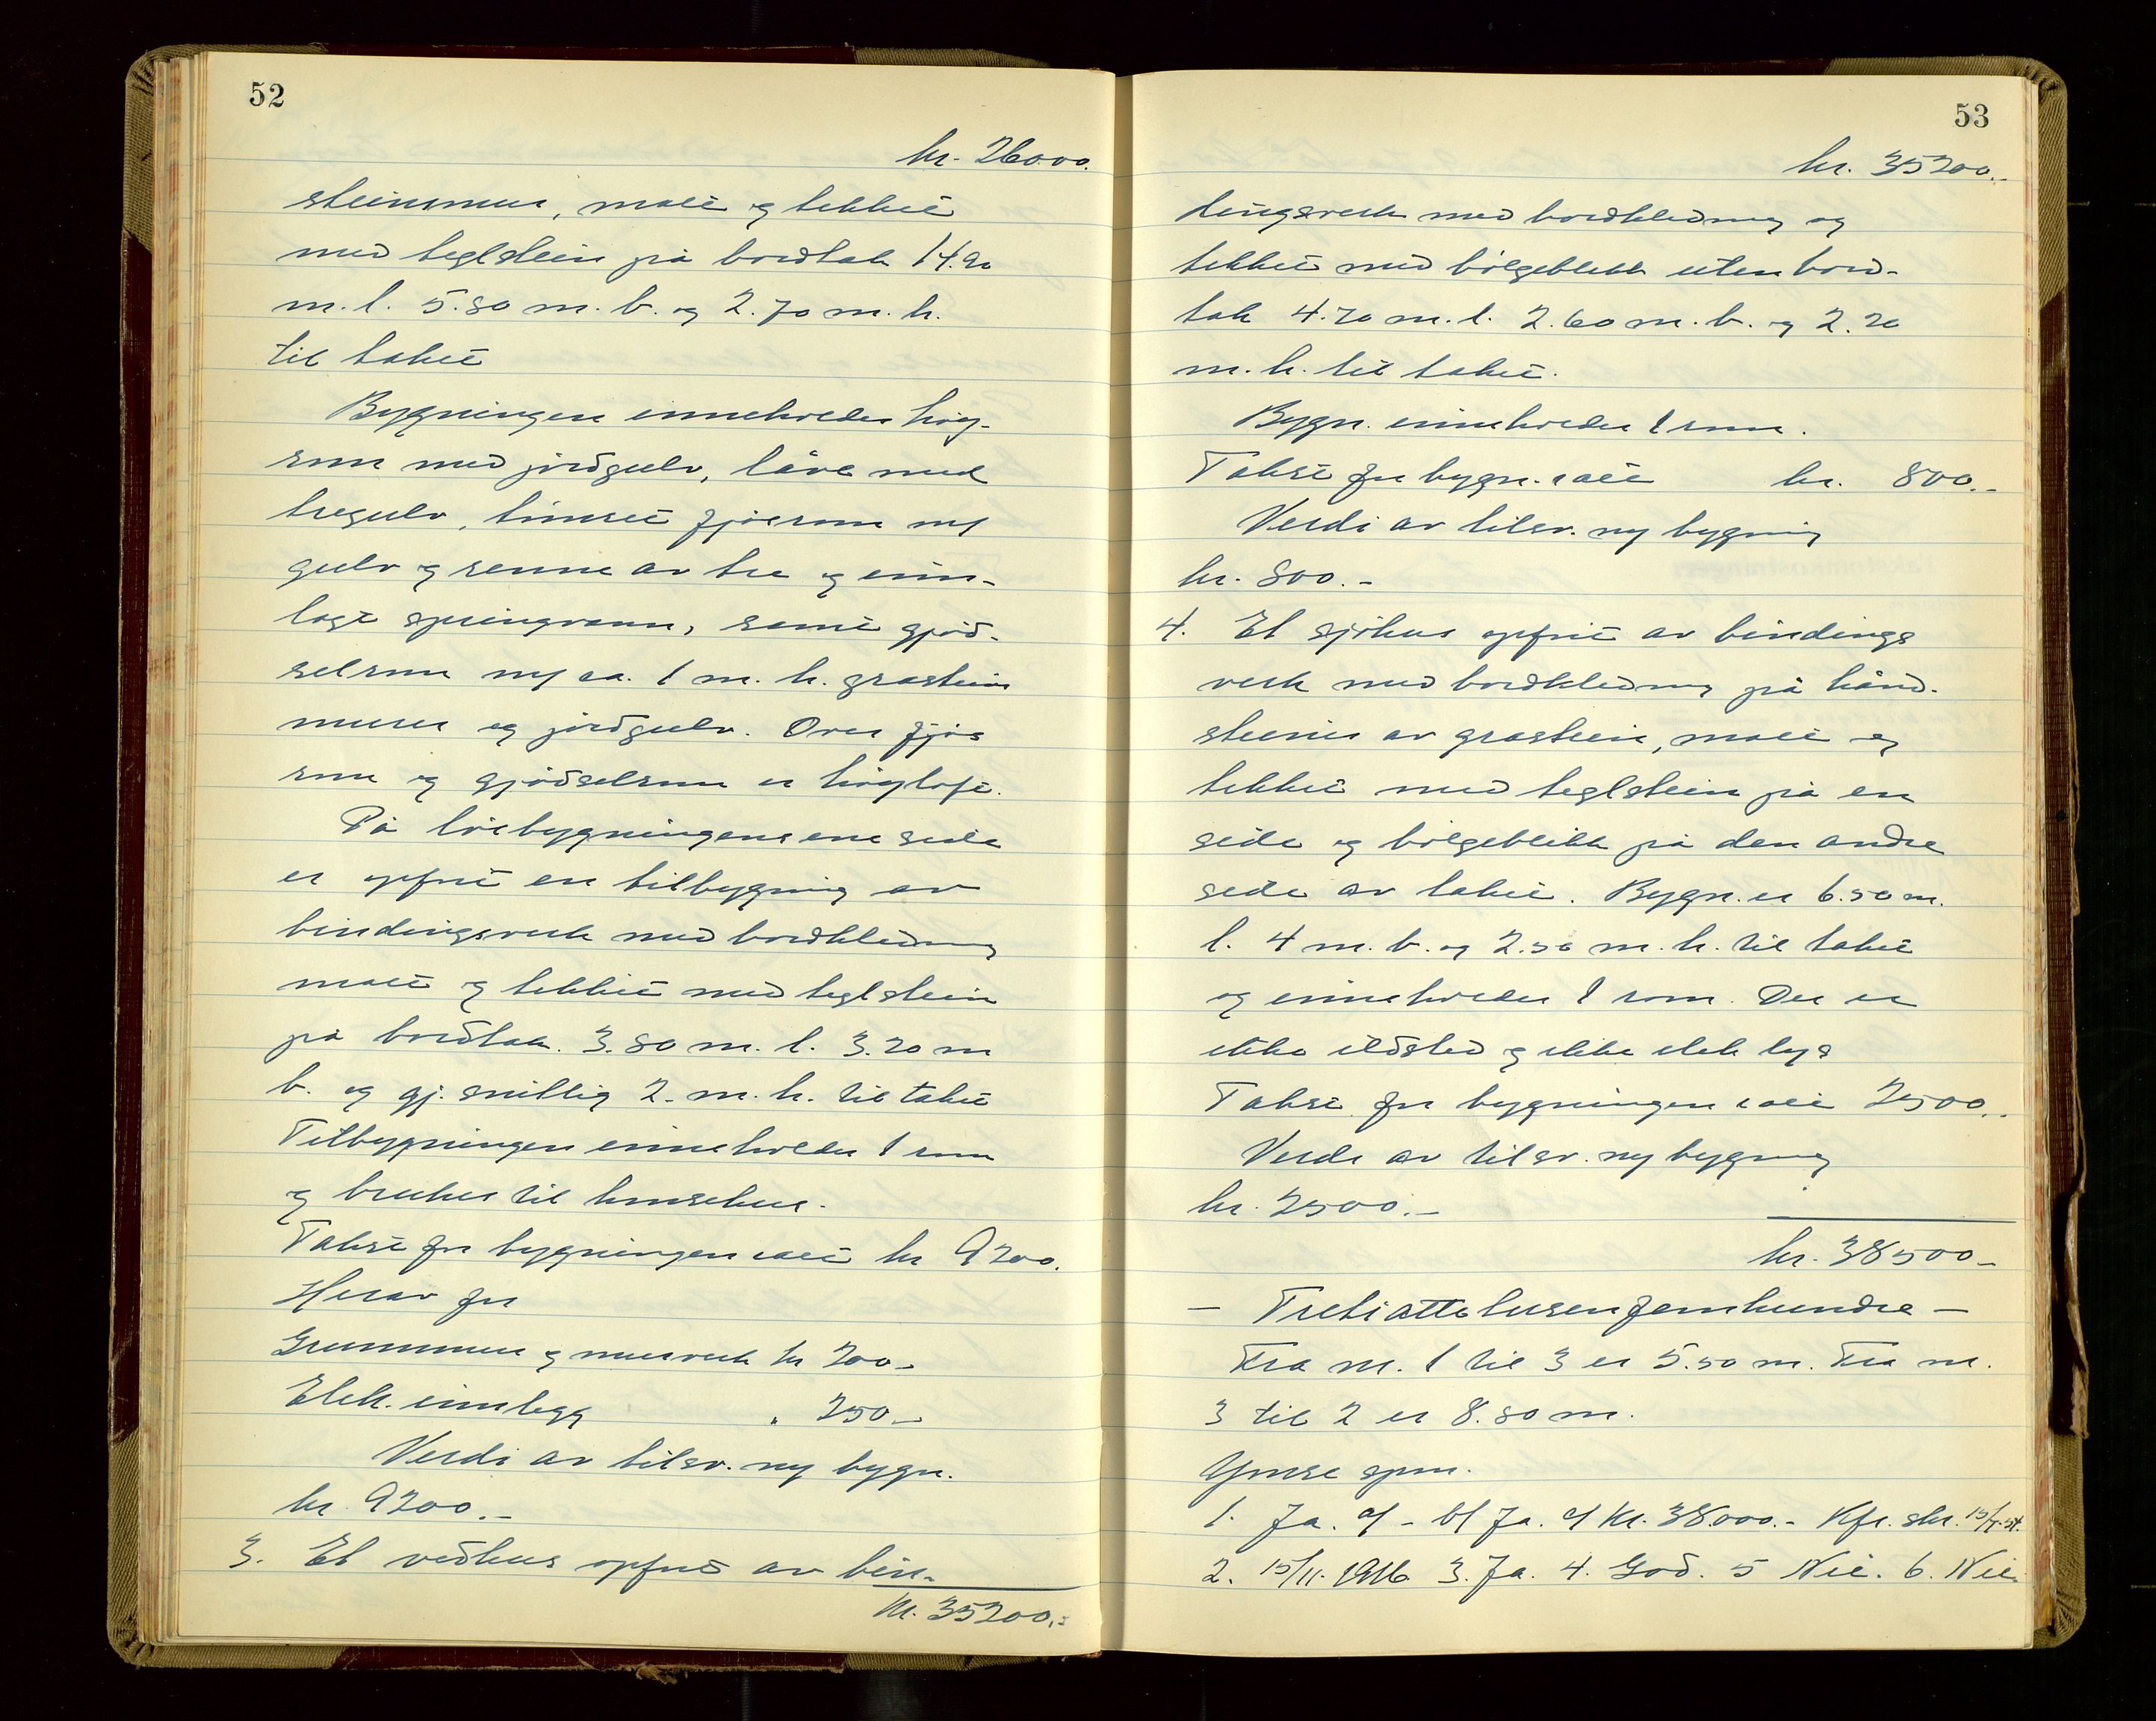 52
kr. 26000.
steinsmur, malt og tekket
med teglstein på bordtak 14.90
m. l. 5.80 m. b. og 2.70 m. h.
til taket
Bygningen inneholder høy-
rum med jordgulv, låve med
tregulv, timret fjøsrum m/
gulv og renne av tre og inn-
lagt springvann, samt gjød-
selrum m/ ca. 1 m. h. grastein
murer og jordgulv. Over fjøs
rum og gjødselrum er høyloft.
På løebygningens ene side
er opført en tilbygning av
bindingsverk med bordkledning
malt og tekket med teglstein
på bordtak. 3.80 m. l. 3.20 m
b. og gj. snittlig 2. m. h. til taket
Tilbygningen inneholder 1 rum
og brukes til hønsehus.
Takst for bygningen i alt kr 9200.
Herav for
Grunnmur og murverk kr 200.-
Elek. innlegg " 250.-
Verdi av tilsv. ny bygn.
kr. 9200.-
3. Et vedhus opført av bin-
kr. 35200.-
53
kr. 35200.-
dingsverk med bordkledning og
tekket med bølgeblikk uten bord-
tak 4.70 m. l. 2.60 m. b. og 2.20
m. h. til taket.
Bygn. inneholder 1 rum.
Takst for bygn. i alt kr. 800.-
Verdi av tilsv. ny bygning
kr. 800.-
4. Et sjøhus opført av bindings
verk med bordkledning på hånd-
steiner av grastein, malt og
tekket med teglstein på en
side og bølgeblikk på den andre
side av taket. Bygn. er 6.50 m.
l. 4 m. b. og 2.50 m. h. til taket
og inneholder 1 rom. Der er
ikke ildsted og ikke elek lys
Takst for bygningen i alt 2500.-
Verdi av tilsv. ny bygning
kr. 2500.-
kr. 38500.-
- Trettiåttetusenfemhundre -
Fra nr. 1 til 3 er 5.50 m. Fra nr.
3 til 2 er 8.80 m.
Ymse spm.
1. Ja. a/ - b/ Ja. c/ Kr. 38000.- Kfr. skr.
2. 15/11. 1916 3. Ja. 4. God. 5 Nei. 6. Nei.